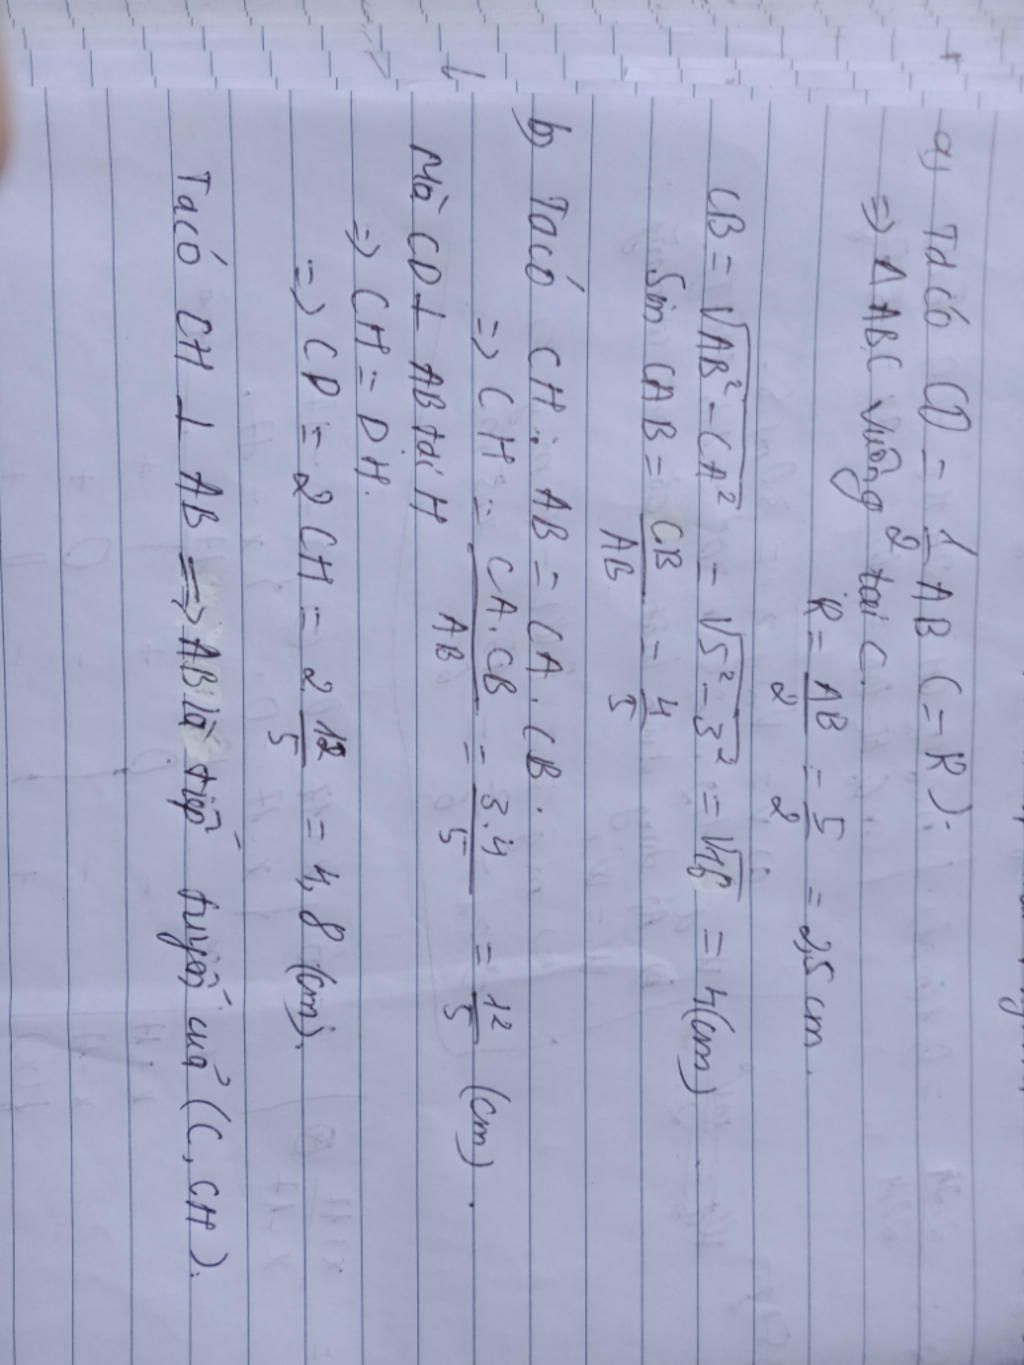 a) Ta có CO = 1/2 AB (= R).
=> Δ ABC vuông tại C.
R = AB/2 = 5/2 = 2,5 cm.
CB = √AB² - CA² = √5² - 3² = √16 = 4(cm)
Sin CAB = CB/AB = 4/5
b) Ta có CH . AB = CA . CB .
=> CH = CA.CB/AB = 3.4/5 = 12/5 (cm) .
Mà CD ⊥ AB tại H
=> CH = DH.
=> CD = 2 CH = 2. 12/5 = 4,8 (cm).
Ta có CH ⊥ AB => AB là tiếp tuyến của (C, CH).